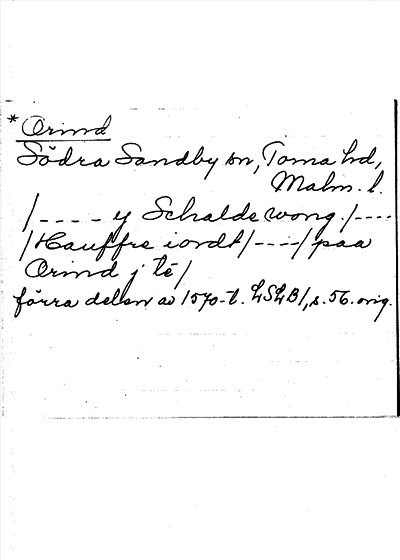 * Orind
Södra Sandby sn, Torna hd,
Malm. l.
/---- y Schaldewong /----
/Hauffre iordt/----/paa
Orind j té/
förra delen av 1570-t. LSLB1, s. 56. orig.